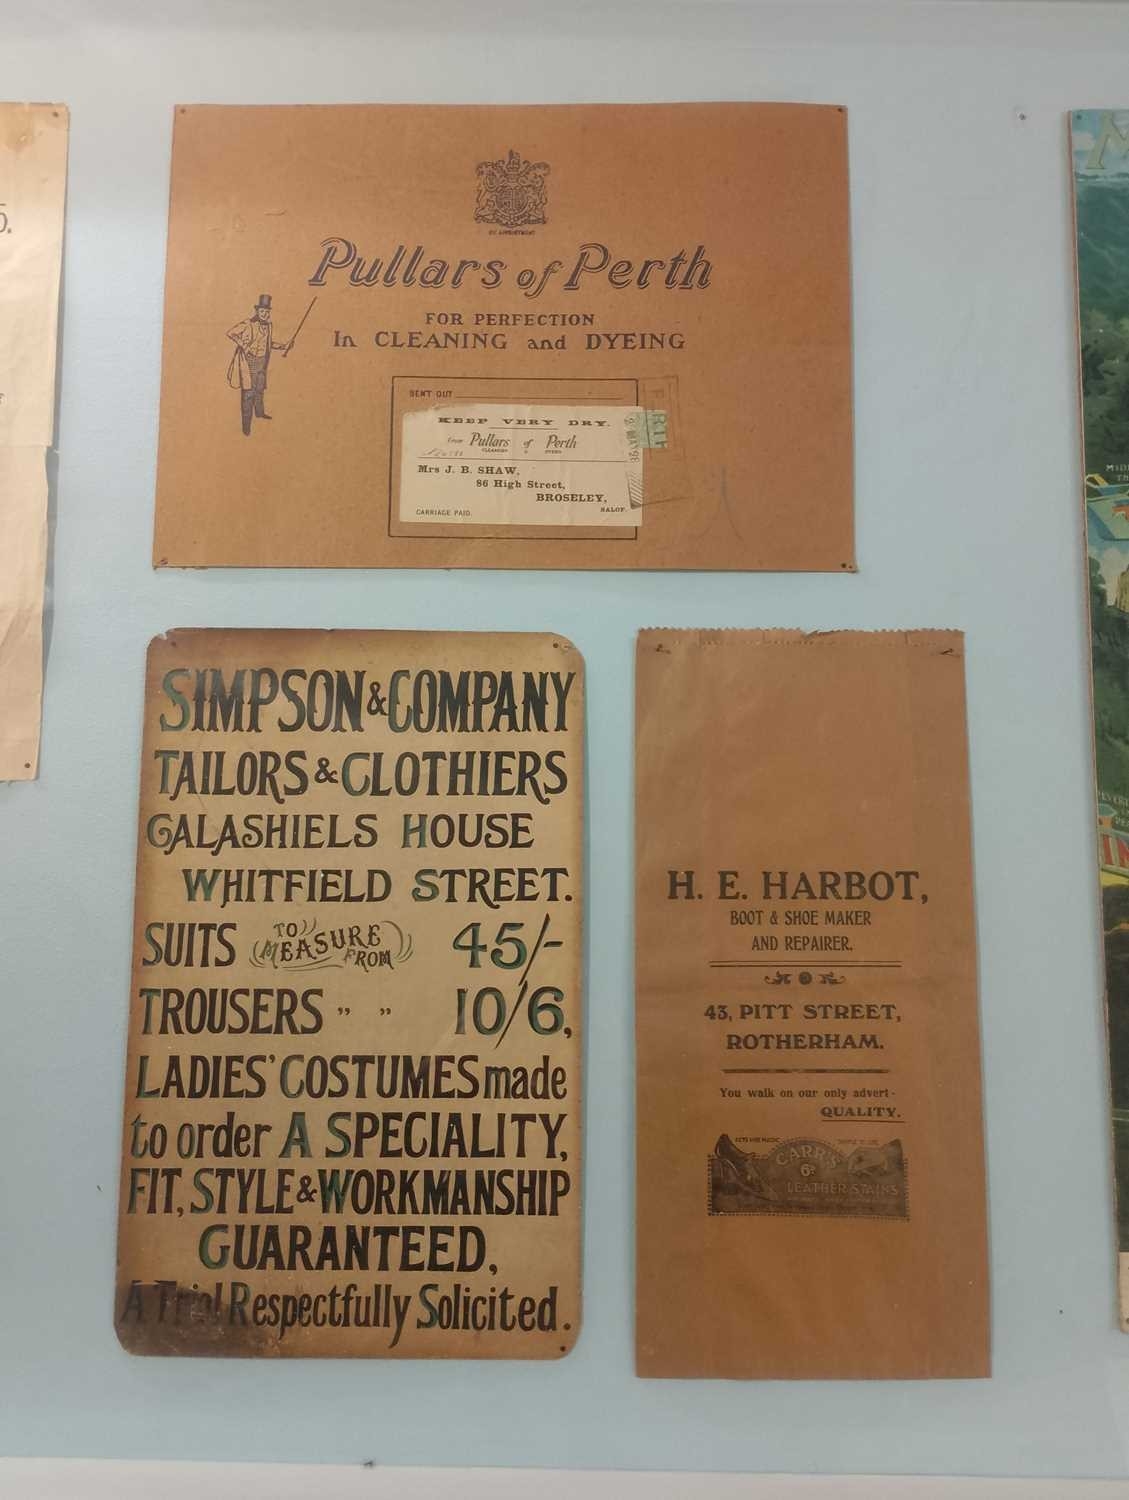 BY APPOINTMENT
Pullars of Perth
FOR PERFECTION
In CLEANING and DYEING
SENT OUT
KEEP VERY DRY.
from Pullars of Perth
CLEANERS & DYERS
Mrs J. B. SHAW,
86 High Street,
BROSELEY,
SALOP.
CARRIAGE PAID.
SIMPSON & COMPANY
TAILORS & CLOTHIERS
GALASHIELS HOUSE
WHITFIELD STREET.
SUITS TO MEASURE FROM 45/-
TROUSERS " " 10/6,
LADIES' COSTUMES made
to order A SPECIALITY,
FIT, STYLE & WORKMANSHIP
GUARANTEED,
A Trial Respectfully Solicited.
H. E. HARBOT,
BOOT & SHOE MAKER
AND REPAIRER.
43, PITT STREET,
ROTHERHAM.
You walk on our only advert-
QUALITY.
CARR'S
LEATHER STAINS